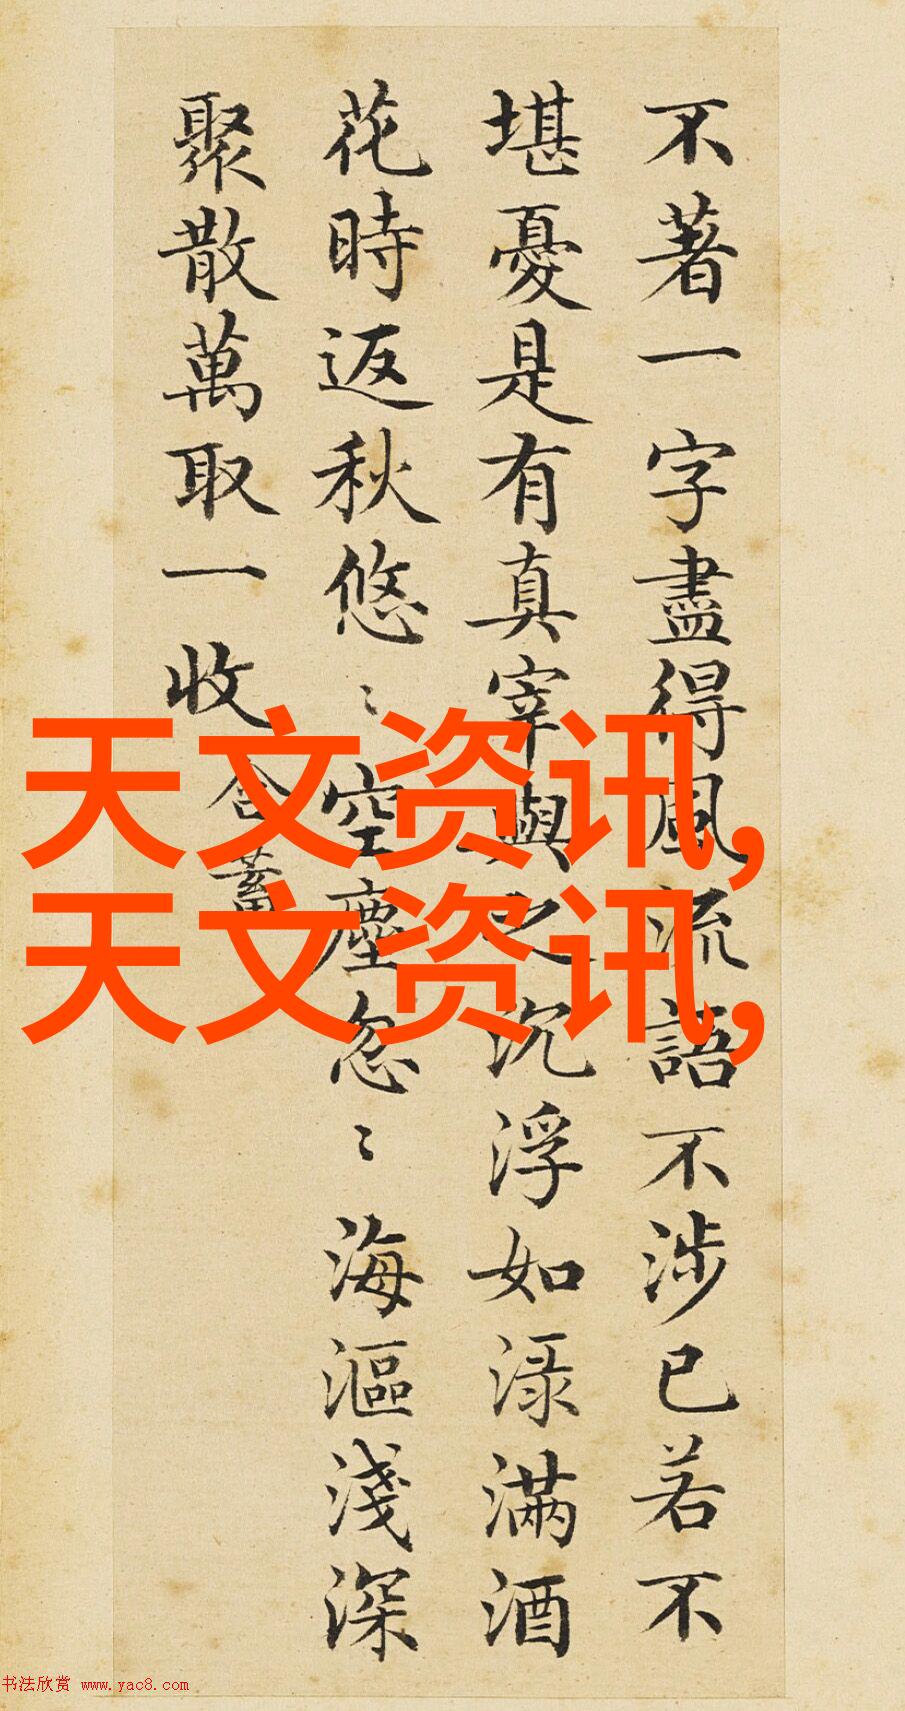 不著一字盡得風流語不涉已若不
堪憂是有真宰與之沉浮如淥滿酒
花時返秋悠〻空塵忽〻海漚淺深
聚散萬取一收 含蓄
天文资讯,
天文资讯,
书法欣赏 www.yac8.com